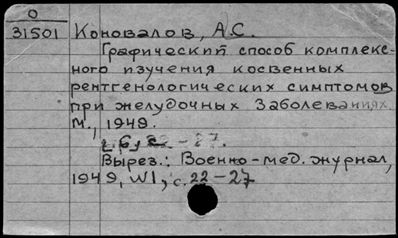 О
31501 Коновалов, А.С.
Графический способ комплекс-
ного изучения косвенных
рентгенологических симптомов
при желудочных заболеваниях.
М., 1949.
Вырез.: Военно-мед. журнал,
1949, №1, с. 22-27